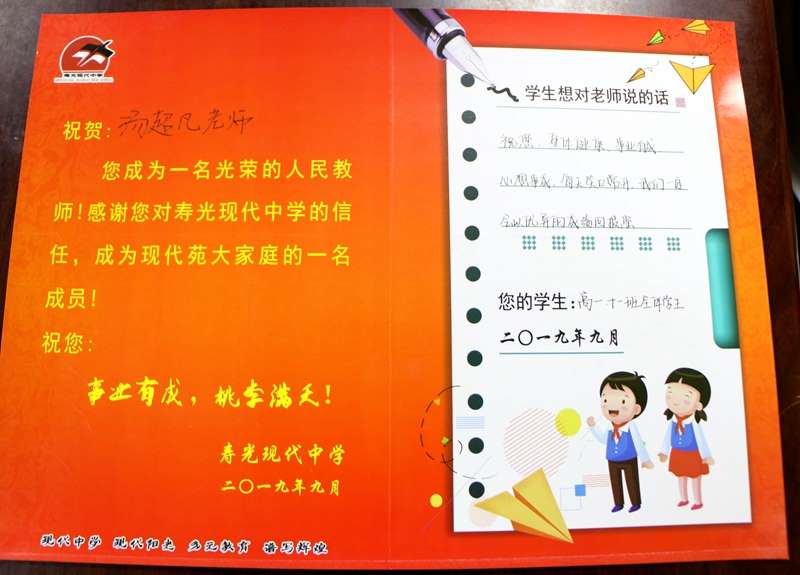 寿光现代中学
祝贺:汤超凡老师
您成为一名光荣的人民教
师!感谢您对寿光现代中学的信
任，成为现代苑大家庭的一名
成员!
祝您:
事业有成，桃李满天!
寿光现代中学
二〇一九年九月
现代中学 现代阳光 多元教育 谱写辉煌
学生想对老师说的话
祝您，身体健康，事业有成
心想事成，每天笑口常开，我们一定
会以优异的成绩回报您
您的学生:高一十一班全体学生
二〇一九年九月